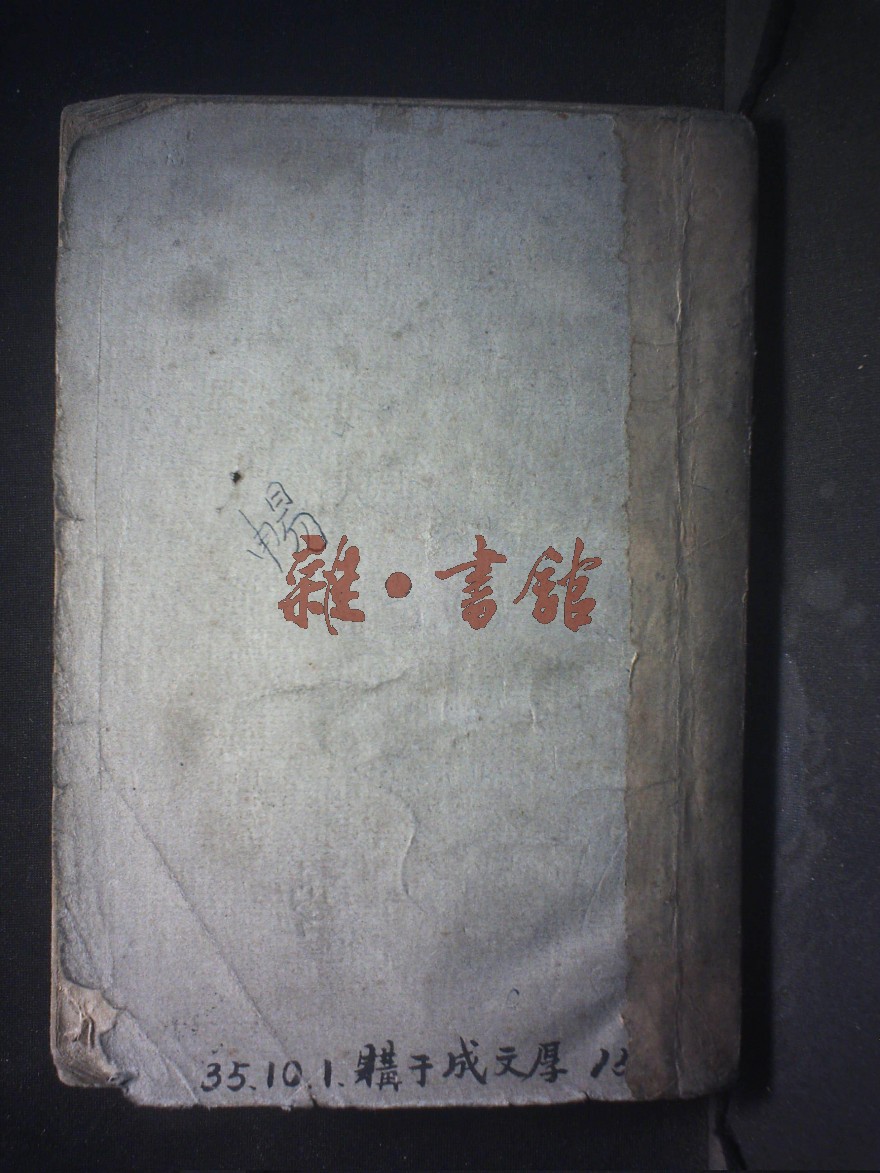 暢
雜·書館
35.10.1.購于成文厚